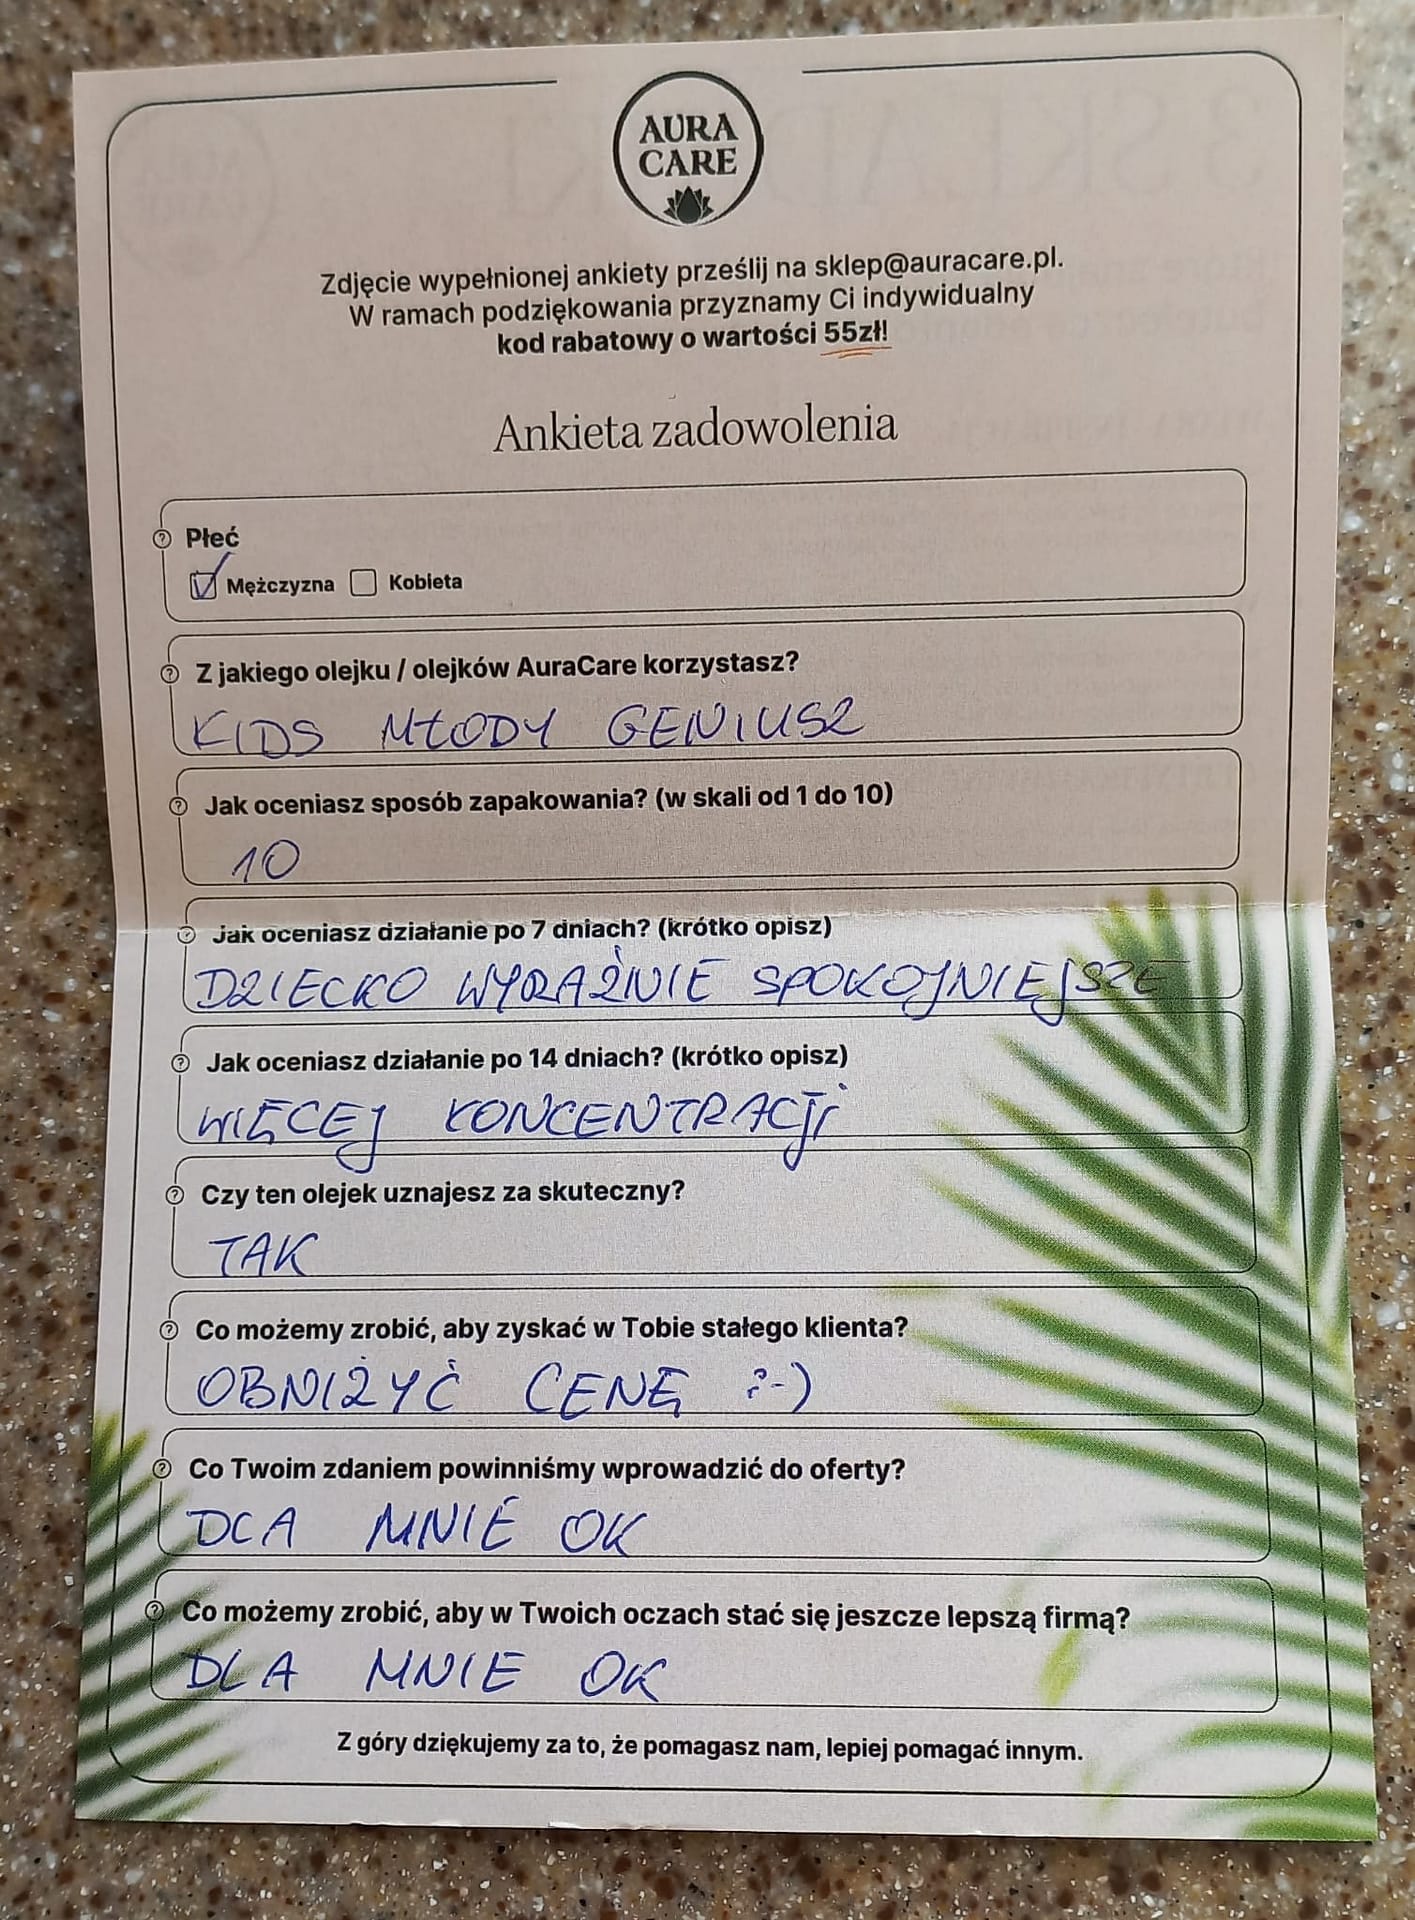 AURA
CARE
Zdjęcie wypełnionej ankiety prześlij na sklep@auracare.pl.
W ramach podziękowania przyznamy Ci indywidualny
kod rabatowy o wartości 55zł!
Ankieta zadowolenia
Płeć
Mężczyzna Kobieta
Z jakiego olejku / olejków AuraCare korzystasz?
KIDS MŁODY GENIUSZ
Jak oceniasz sposób zapakowania? (w skali od 1 do 10)
10
Jak oceniasz działanie po 7 dniach? (krótko opisz)
DZIECKO WYRAŹNIE SPOKOJNIEJSZE
Jak oceniasz działanie po 14 dniach? (krótko opisz)
WIĘCEJ KONCENTRACJI
Czy ten olejek uznajesz za skuteczny?
TAK
Co możemy zrobić, aby zyskać w Tobie stałego klienta?
OBNIŻYĆ CENĘ :-)
Co Twoim zdaniem powinniśmy wprowadzić do oferty?
DLA MNIE OK
Co możemy zrobić, aby w Twoich oczach stać się jeszcze lepszą firmą?
DLA MNIE OK
Z góry dziękujemy za to, że pomagasz nam, lepiej pomagać innym.